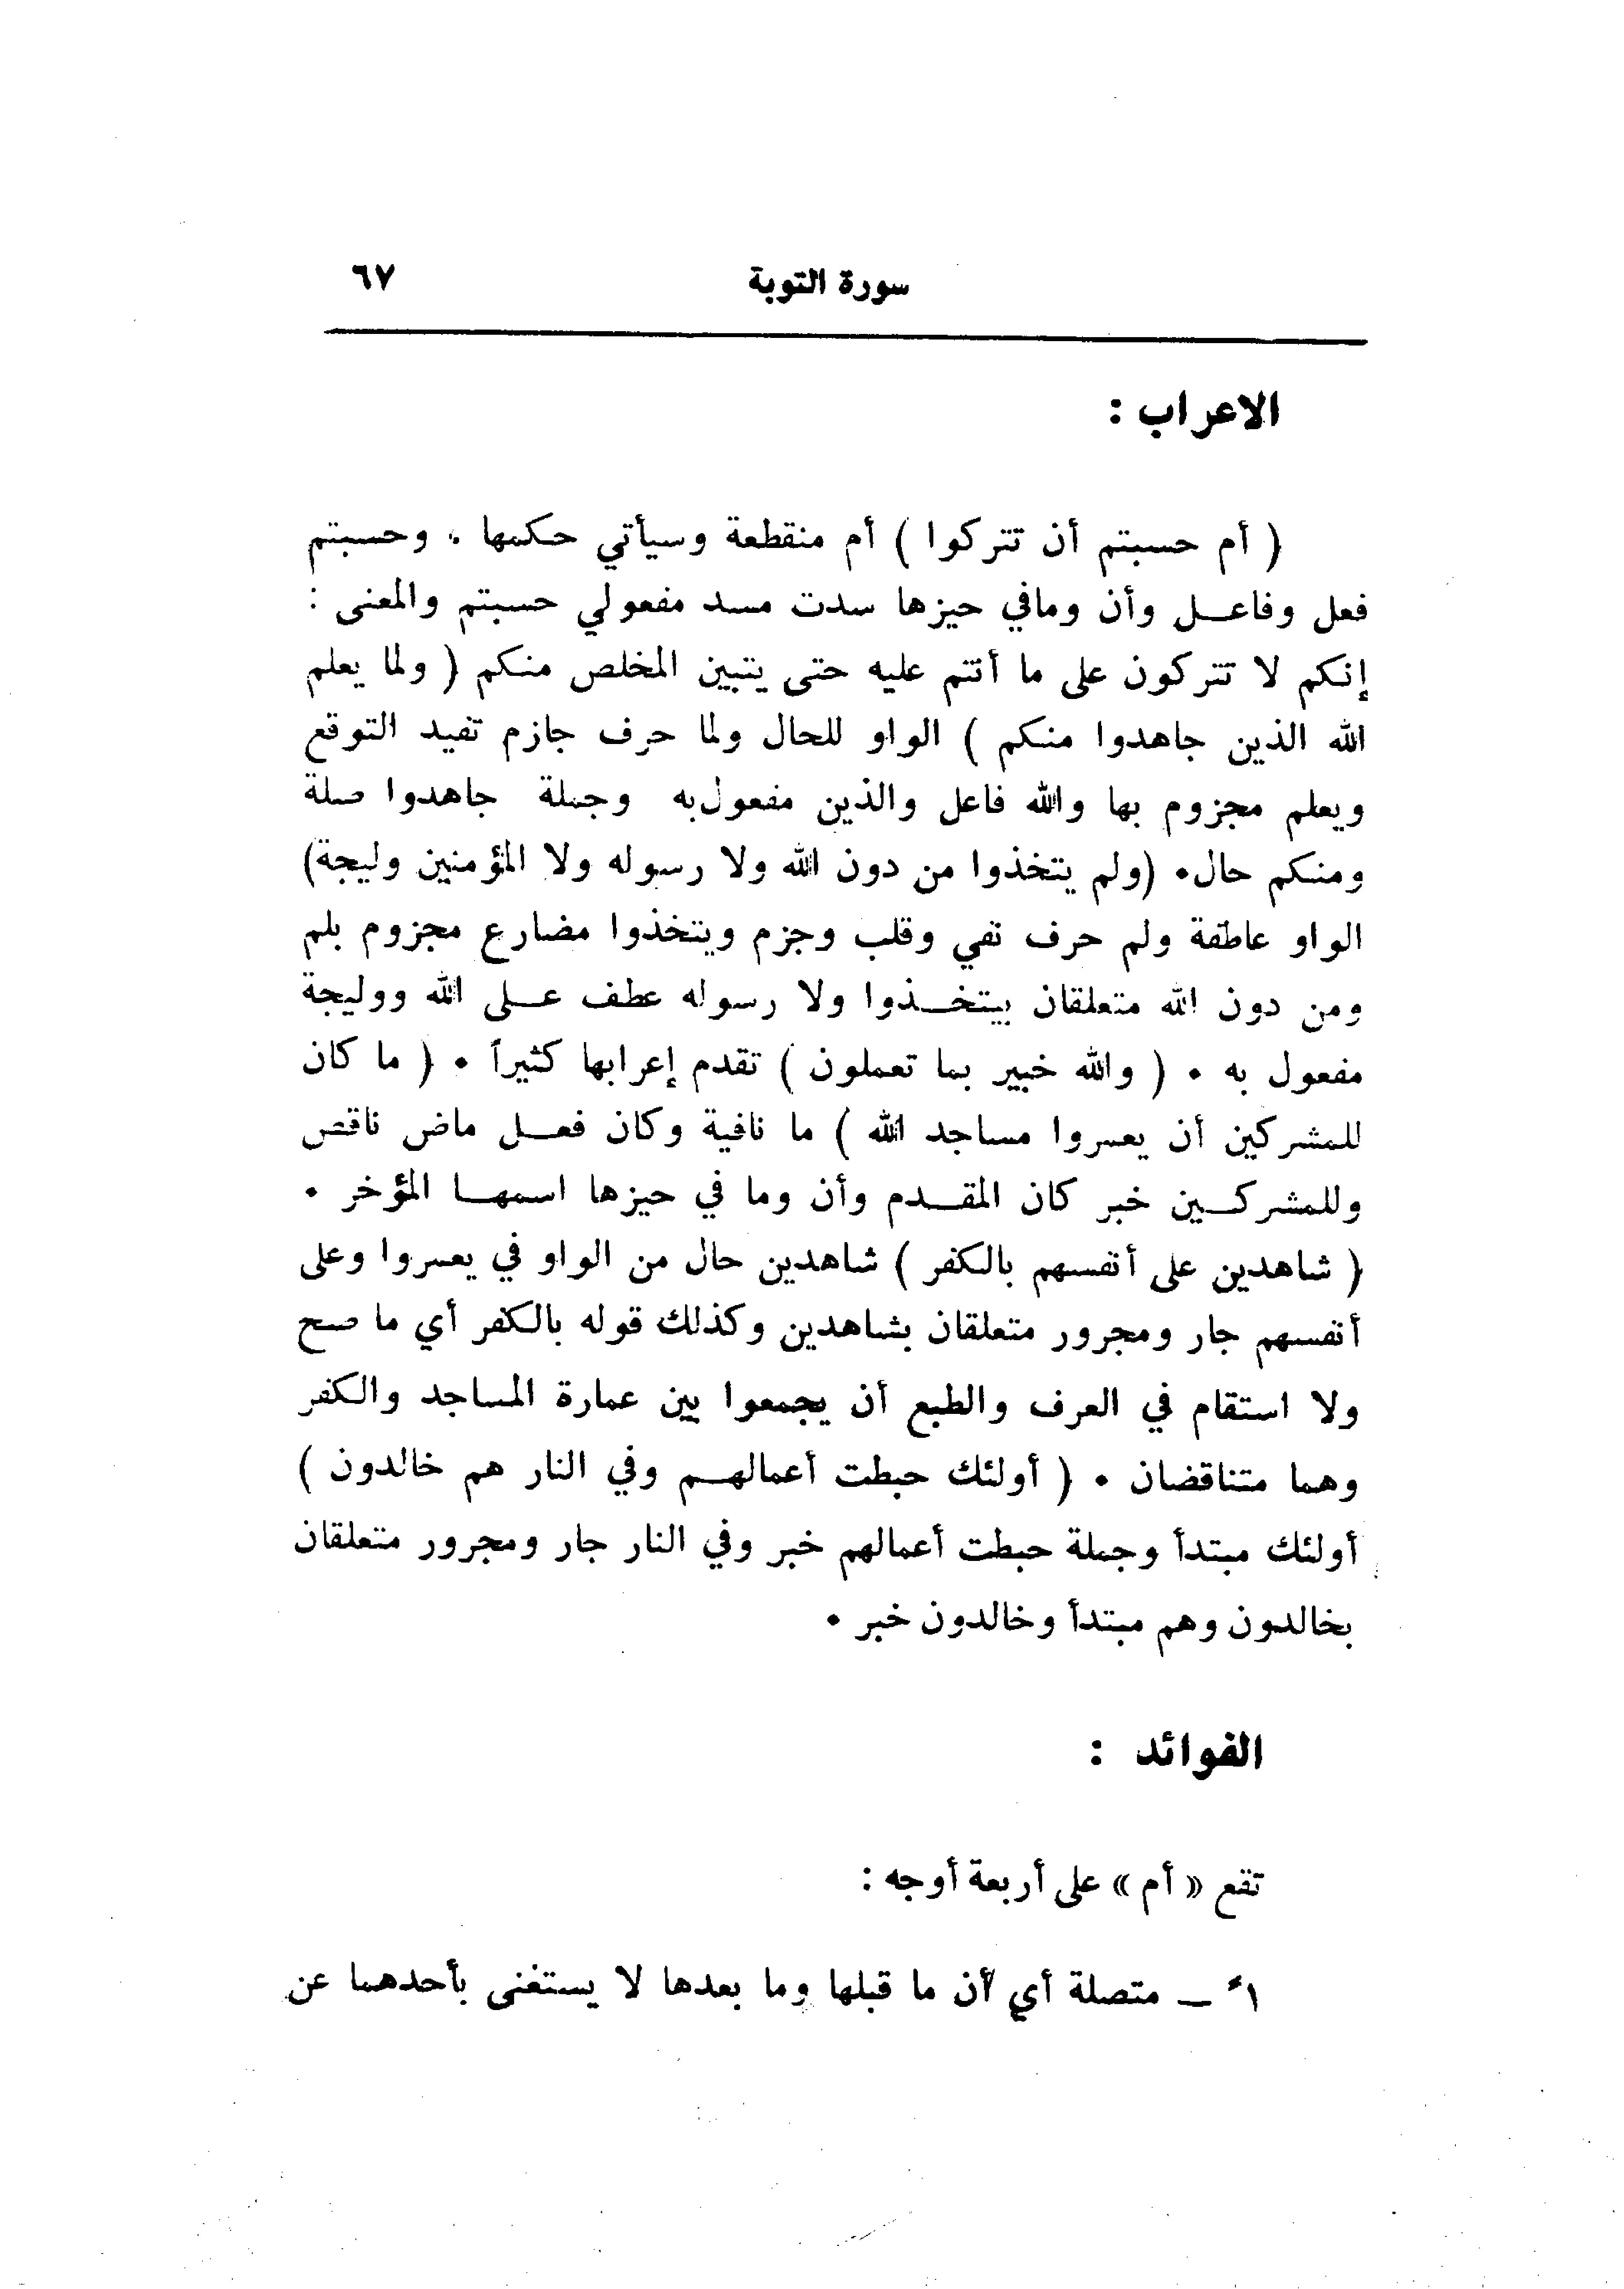 سورة التوبة ٦٧
الاعراب :
( أم حسبتم أن تتركوا ) أم منقطعة وسيأتي حكمها ، وحسبتم
فعل وفاعل وأن ومافي حيزها سدت مسد مفعولي حسبتم والمعنى :
إنكم لا تتركون على ما أنتم عليه حتى يتبين المخلص منكم ( ولما يعلم
الله الذين جاهدوا منكم ) الواو للحال ولما حرف جازم تفيد التوقع
ويعلم مجزوم بها والله فاعل والذين مفعول به وجملة جاهدوا صلة
ومنكم حال . (ولم يتخذوا من دون الله ولا رسوله ولا المؤمنين وليجة)
الواو عاطفة ولم حرف نفي وقلب وجزم ويتخذوا مضارع مجزوم بلم
ومن دون الله متعلقان بيتخذوا ولا رسوله عطف على الله ووليجة
مفعول به . ( والله خبير بما تعملون ) تقدم إعرابها كثيراً . ( ما كان
للمشركين أن يعمروا مساجد الله ) ما نافية وكان فعل ماض ناقص
وللمشركين خبر كان المقدم وأن وما في حيزها اسمها المؤخر .
( شاهدين على أنفسهم بالكفر ) شاهدين حال من الواو في يعمروا وعلى
أنفسهم جار ومجرور متعلقان بشاهدين وكذلك قوله بالكفر أي ما صح
ولا استقام في العرف والطبع أن يجمعوا بين عمارة المساجد والكفر
وهما متناقضان . ( أولئك حبطت أعمالهم وفي النار هم خالدون )
أولئك مبتدأ وجملة حبطت أعمالهم خبر وفي النار جار ومجرور متعلقان
بخالدون وهم مبتدأ وخالدون خبر .
الفوائد :
تقع « أم » على أربعة أوجه :
١ً ـ متصلة أي أن ما قبلها وما بعدها لا يستغنى بأحدهما عن